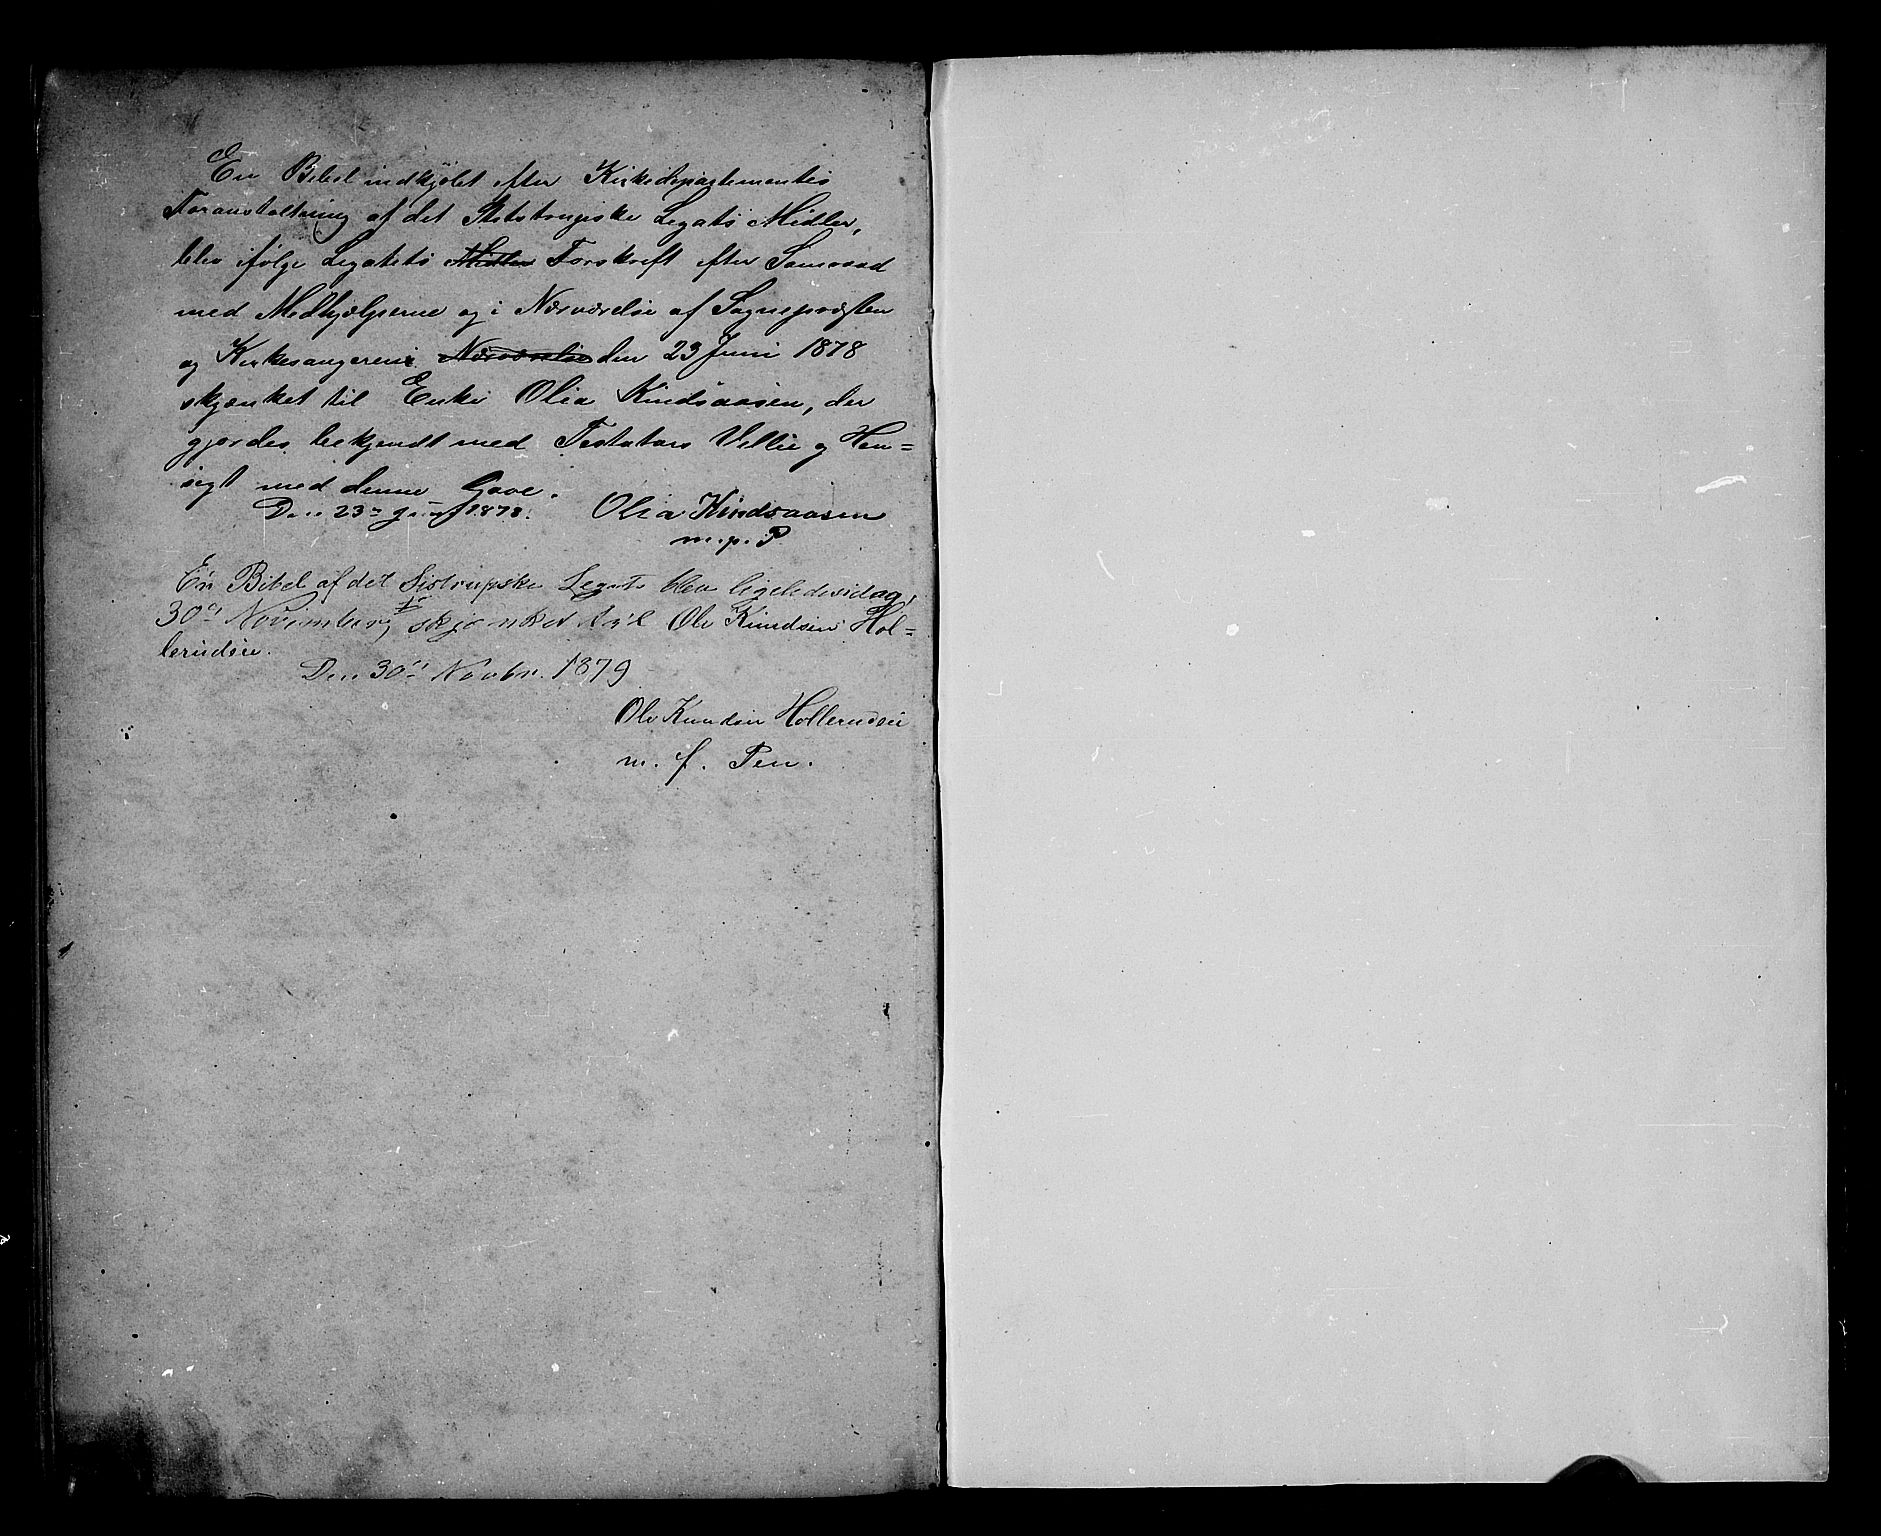 En Bibel indkjøbt efter Kirkedepartementets
Foranstaltning af det Sistrupiske Legats Midler,
blev ifølge Legatets Midler Forskrift efter Samraad
med Medhjælperne og i Nærværelse af Sognepræsten
og Kirkesangeren Nærværelse den 23 Juni 1878
skjænket til Enke Olia Kindsaasen, der
gjordes bekjendt med Testators Villie og Hen=
sigt med denne Gave.
Den 23de Juni 1878. Olia Kindsaasen
m. p. P.
En Bibel af det Sistrupske Legat blev ligeledes idag,
30te November, skjænket til Ole Knudsen Hol=
lerudeie.
Den 30te Novbr. 1879
Ole Knudsen Hollerudeie
m. f. Pen.